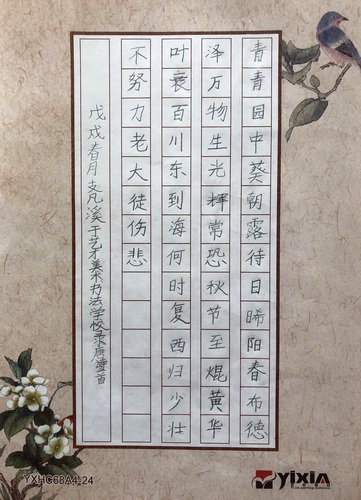 青青园中葵朝露待日晞阳春布德
泽万物生光辉常恐秋节至焜黄华
叶衰百川东到海何时复西归少壮
不努力老大徒伤悲
戊戌春月 溪于艺才美术书法学校录 首
YXHC68A4-24
yixin